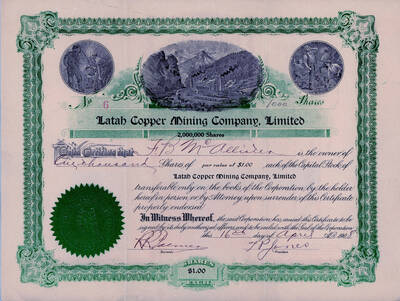 No. 6
1000 Shares
Latah Copper Mining Company, Limited
2,000,000 Shares
This Certifies that F.B. McAllister is the owner of
One thousand Shares of par value at $1.00 each of the Capital Stock of
Latah Copper Mining Company, Limited
transferable only on the books of the Corporation by the holder
hereof in person or by Attorney upon surrender of this Certificate
properly endorsed.
In Witness Whereof, the said Corporation has caused this Certificate to be
signed by its duly authorized officers and to be sealed with the Seal of the Corporation
this 16th day of April A.D. 190
Secretary
President
SHARES
$1.00
EACH